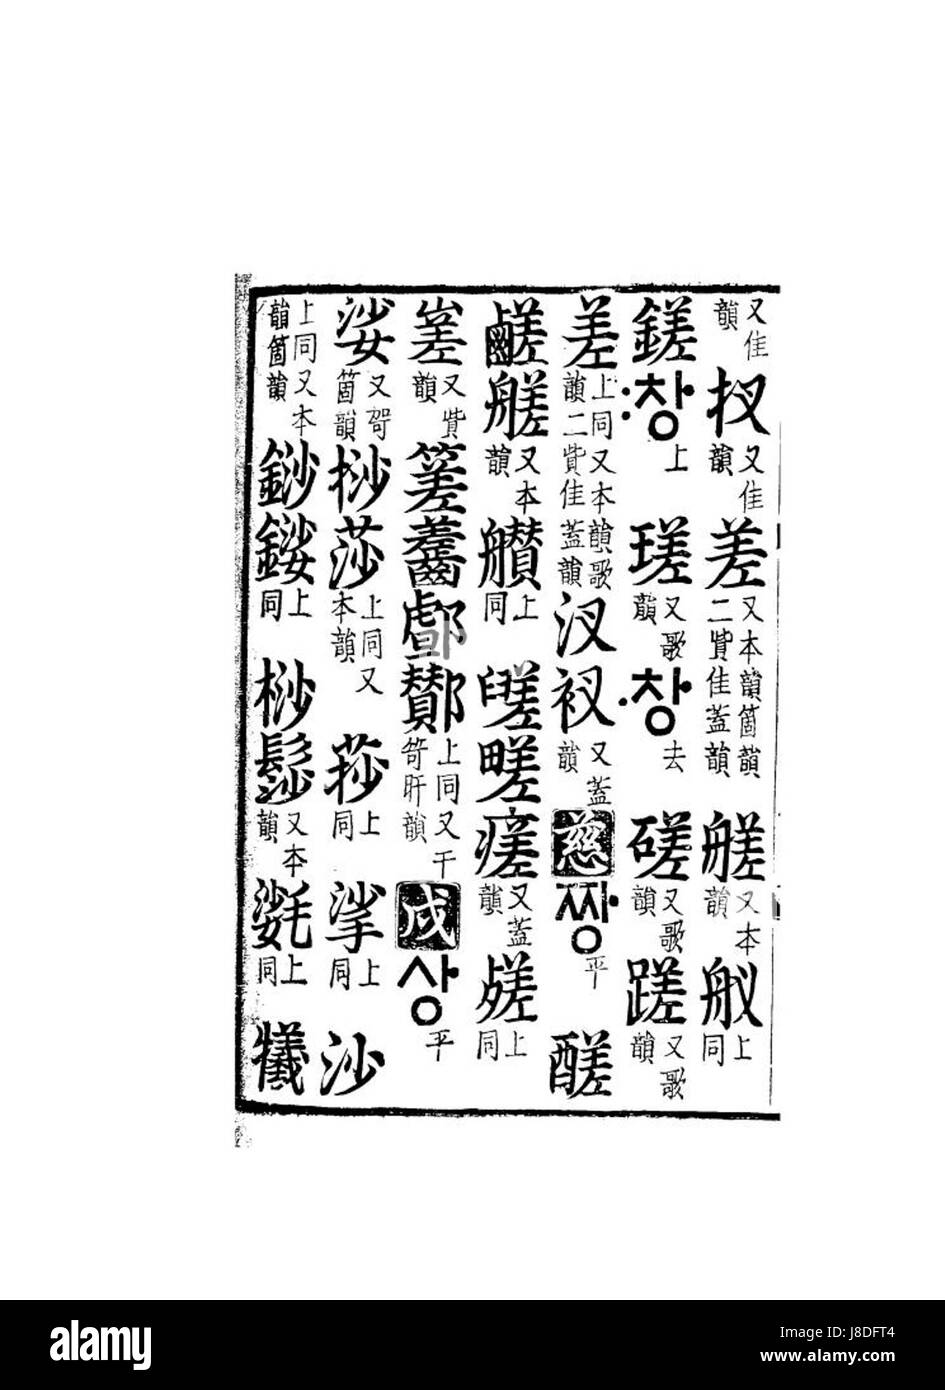 又佳韻 杈 又佳韻 差 又本韻箇韻二貲佳蓋韻 艖 又本韻 舣 上同
鎈 :창 上 瑳 又歌韻 ·창 去 磋 又歌韻 蹉 又歌韻
差 上同又本韻歌韻二貲佳蓋韻 汊 衩 又蓋韻 慈 짱 平 醝
鹺 艖 又本韻 上同 瘥 又蓋韻 上同
嵳 又貲韻 齹 酇 上同又干笴旰韻 戌 상 平
娑 又哿箇韻 桫 莎 上同又本韻 莏 上同 挲 上同 沙
上同又本韻箇韻 上同 桫 髿 又本韻 上同 犧
alamy
alamy
Image ID: J8DFT4
www.alamy.com